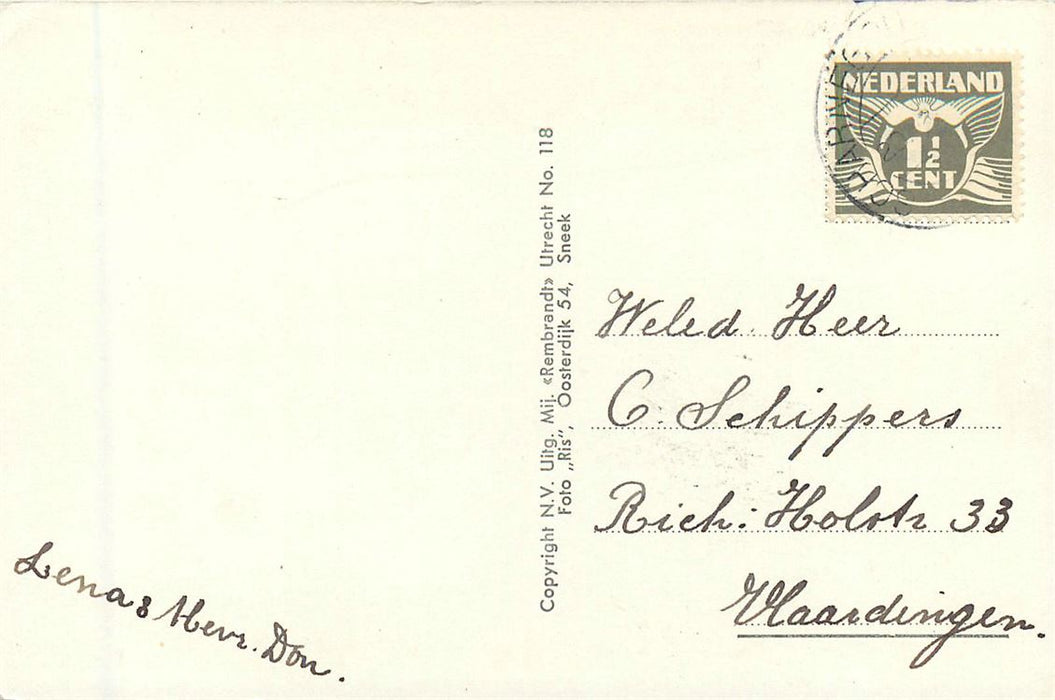 NEDERLAND
1½
CENT
Copyright N.V. Uitg. Mij. «Rembrandt» Utrecht No. 118
Foto „Ris”, Oosterdijk 54, Sneek
Weled. Heer
C. Schippers
Rich: Holstr 33
Vlaardingen.
Lena & Mevr. Don.